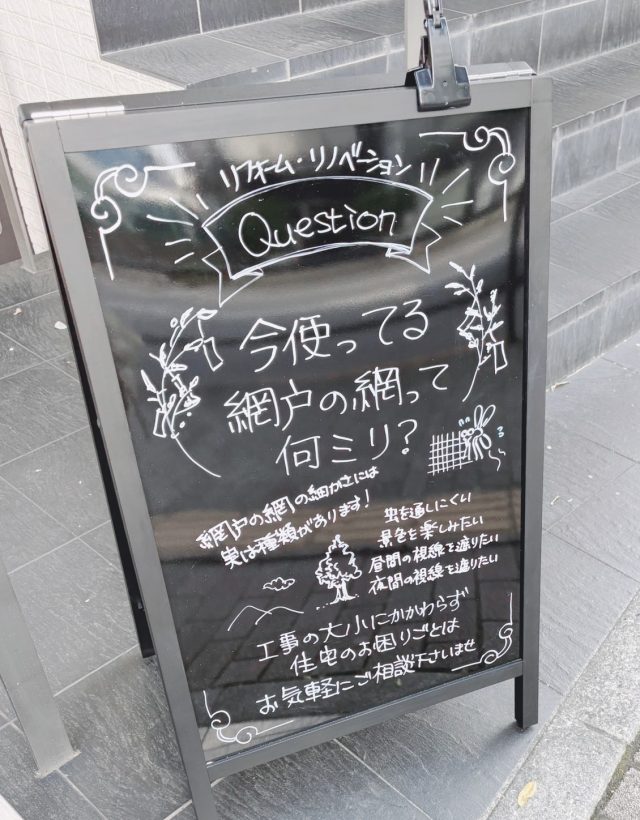 リフォーム・リノベーション
Question
今使ってる
網戸の網って
何ミリ?
網戸の網の細かさには
実は種類があります!
虫を通しにくい
景色を楽しみたい
昼間の視線を遮りたい
夜間の視線を遮りたい
工事の大小にかかわらず
住宅のお困りごとは
お気軽にご相談下さいませ